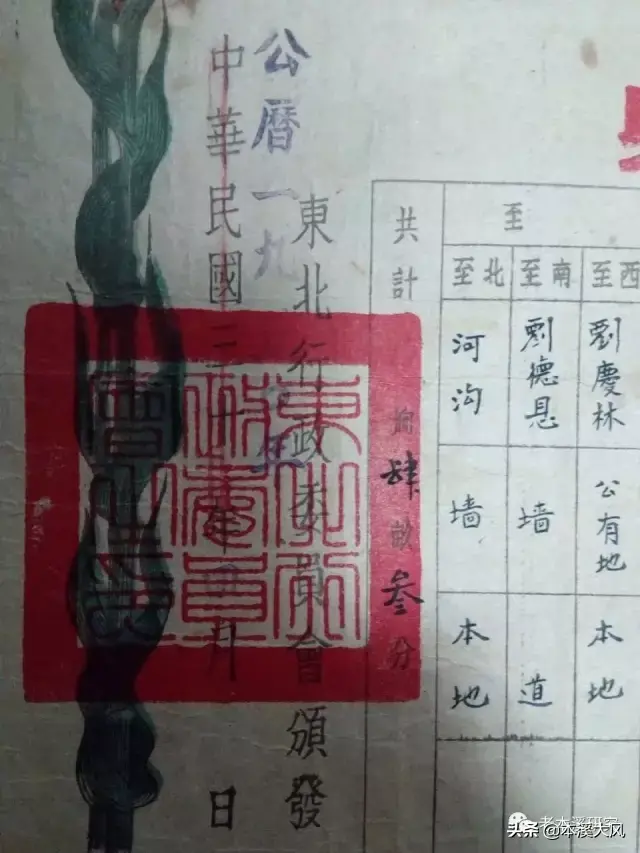 至
西至
劉慶林
公有地
本地
南至
劉德恩
墙
道
北至
河沟
墙
本地
共計垧肆畝叁分
東北行政委員會頒發
公曆一九
中華民國三十年月日
東北行政委員會之印
老本溪研究
头条 @本溪大风